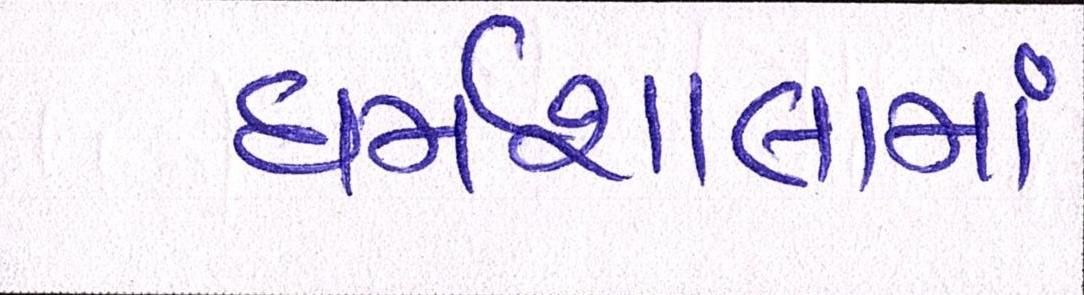 ધર્મશાલામાં